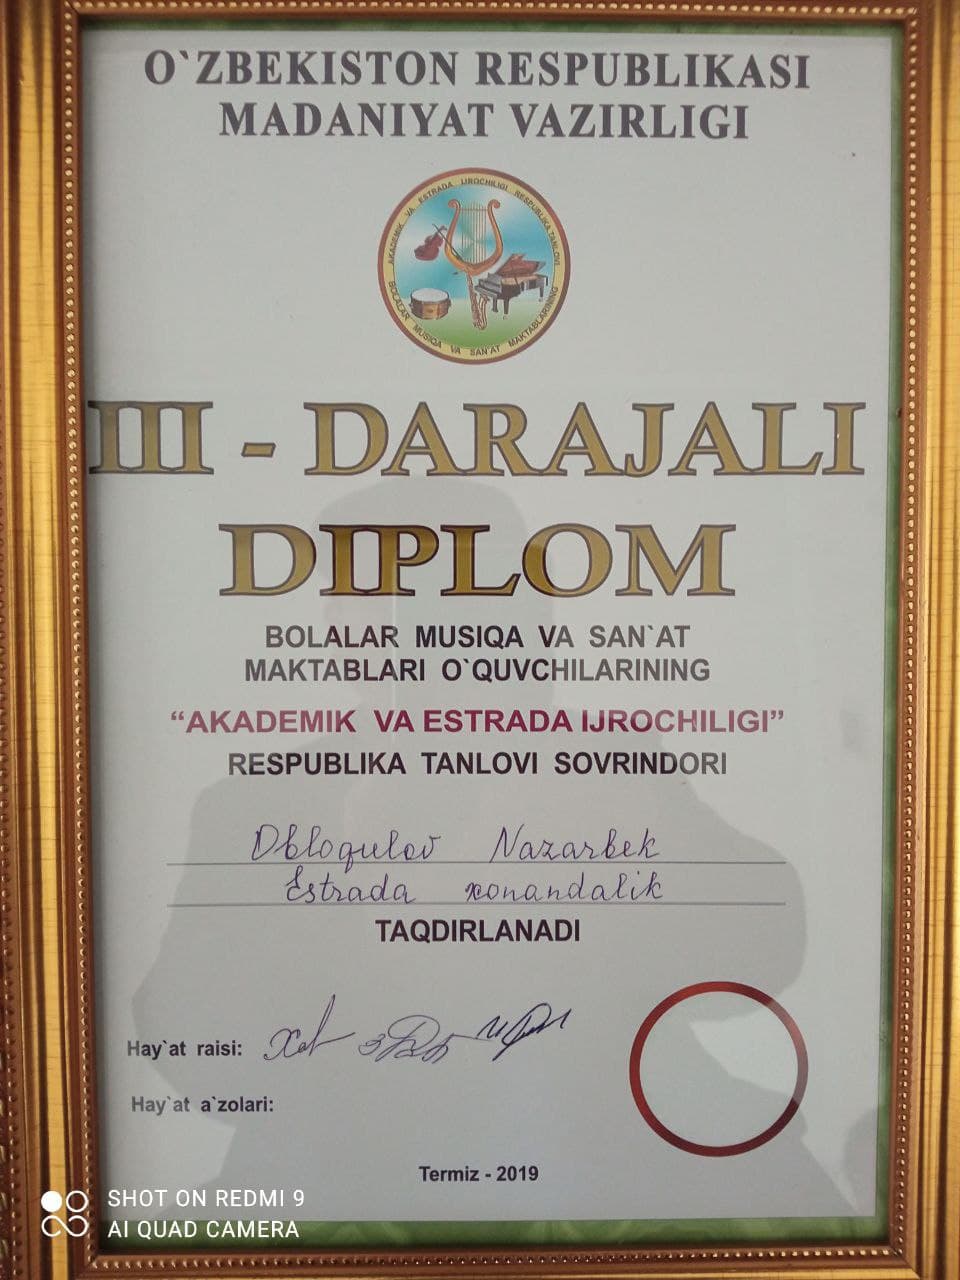 O`ZBEKISTON RESPUBLIKASI
MADANIYAT VAZIRLIGI
AKADEMIK VA ESTRADA IJROCHILIGI RESPUBLIKA TANLOVI
BOLALAR MUSIQA VA SAN'AT MAKTABLARINING
III - DARAJALI
DIPLOM
BOLALAR MUSIQA VA SAN`AT
MAKTABLARI O`QUVCHILARINING
“AKADEMIK VA ESTRADA IJROCHILIGI”
RESPUBLIKA TANLOVI SOVRINDORI
Nazarbek
Estrada xonandalik
TAQDIRLANADI
Hay`at raisi:
Hay`at a`zolari:
Termiz - 2019
SHOT ON REDMI 9
AI QUAD CAMERA